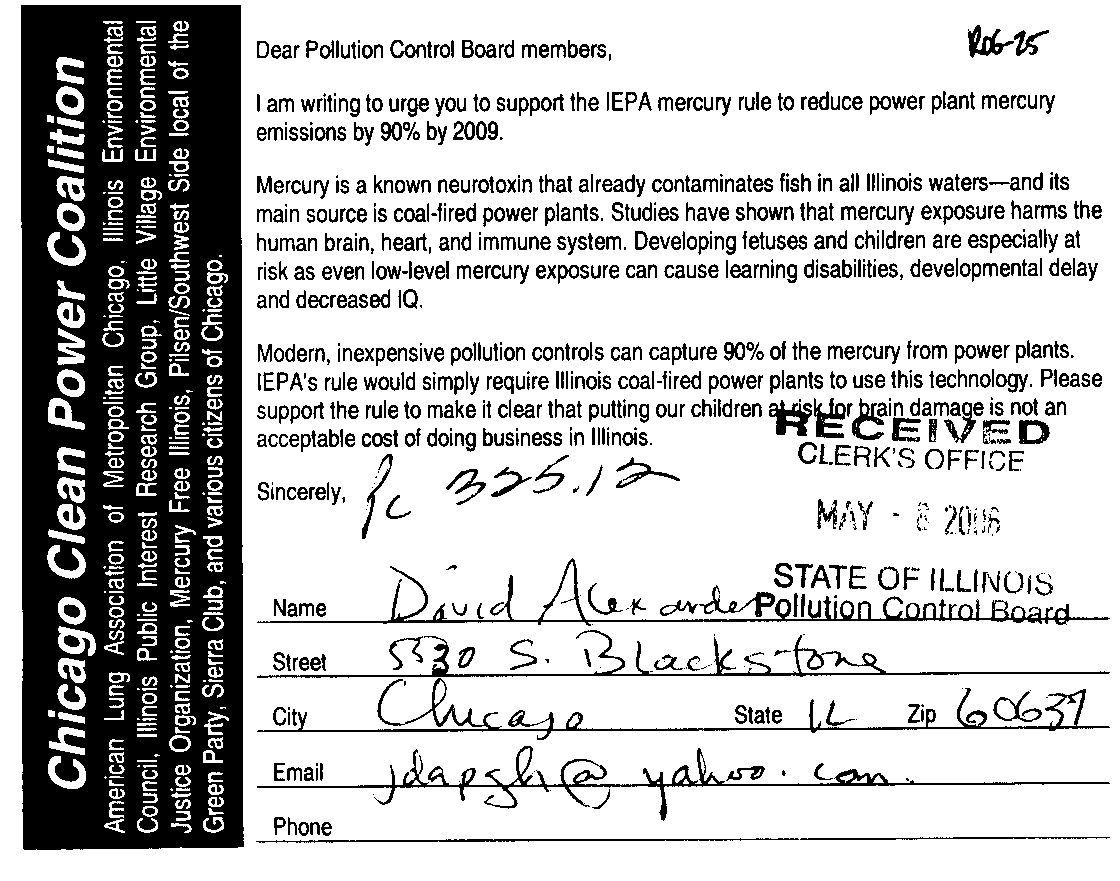 Chicago Clean Power Coalition
American Lung Association of Metropolitan Chicago, Illinois Environmental
Council, Illinois Public Interest Research Group, Little Village Environmental
Justice Organization, Mercury Free Illinois, Pilsen/Southwest Side local of the
Green Party, Sierra Club, and various citizens of Chicago.
R06-25
Dear Pollution Control Board members,
I am writing to urge you to support the IEPA mercury rule to reduce power plant mercury
emissions by 90% by 2009.
Mercury is a known neurotoxin that already contaminates fish in all Illinois waters—and its
main source is coal-fired power plants. Studies have shown that mercury exposure harms the
human brain, heart, and immune system. Developing fetuses and children are especially at
risk as even low-level mercury exposure can cause learning disabilities, developmental delay
and decreased IQ.
Modern, inexpensive pollution controls can capture 90% of the mercury from power plants.
IEPA's rule would simply require Illinois coal-fired power plants to use this technology. Please
support the rule to make it clear that putting our children at risk for brain damage is not an
acceptable cost of doing business in Illinois.
RECEIVED
CLERK'S OFFICE
MAY - 8 2006
STATE OF ILLINOIS
Pollution Control Board
Sincerely, PC 325.12
Name David Alexander
Street 5530 S. Blackstone
City Chicago State IL Zip 60637
Email jdapgh@yahoo.com
Phone